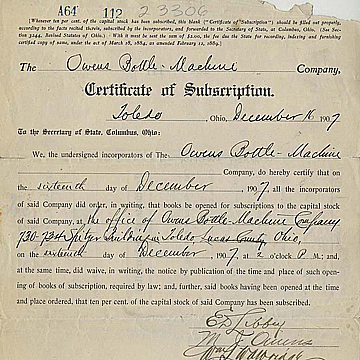 A64 112 23306
[Whenever ten per cent. of the capital stock has been subscribed, this blank ("Certificate of Subscription") should be filled out properly,
according to the facts recited therein, subscribed by the incorporators, and forwarded to the Secretary of State, at Columbus, Ohio. (See Section
3244, Revised Statutes of Ohio.) With it must be sent the sum of $2.00, the fee due the State for recording, indexing and furnishing
certified copy of same, under the act of March 18, 1884, as amended February 12, 1889.]
The Owens Bottle-Machine Company,
Certificate of Subscription.
Toledo, Ohio, December 16 1907
To the Secretary of State, Columbus, Ohio:
We, the undersigned incorporators of The Owens Bottle-Machine
Company, do hereby certify that on
the sixteenth day of December, 1907, all the incorporators
of said Company did order, in writing, that books be opened for subscriptions to the capital stock
of said Company, at the office of Owens Bottle-Machine Company
730-734 Spitzer Building in Toledo Lucas County, Ohio,
on the sixteenth day of December, 1907, at 2 o'clock P. M.; and,
at the same time, did waive, in writing, the notice by publication of the time and place of such open-
ing of books of subscription, required by law; and, further, said books having been opened at the time
and place ordered, that ten per cent. of the capital stock of said Company has been subscribed.
E D Libby
M J Owens